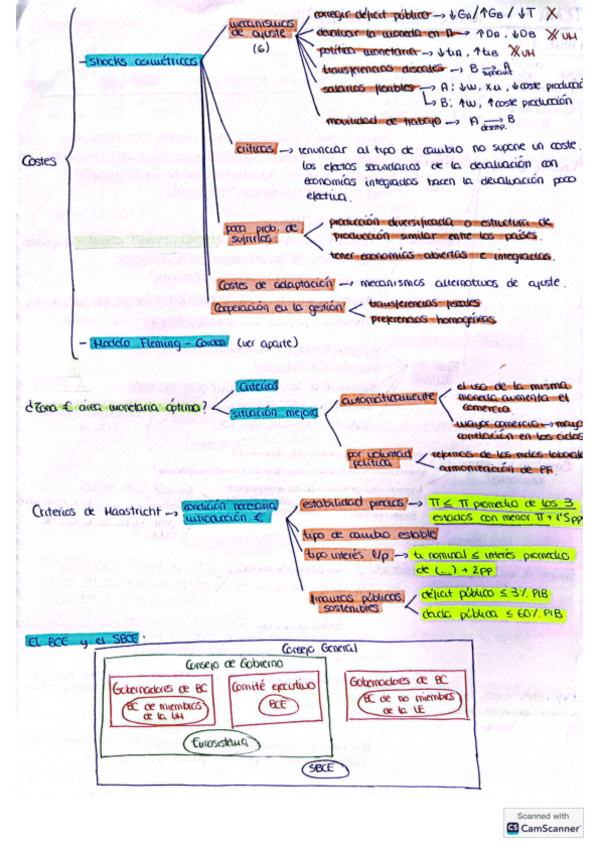 Costes
- shocks asimétricos
mecanismos de ajuste (6)
corregir déficit público → ↓GA/↑GB / ↓T X
devaluar la moneda en A → ↑DA, ↓DB X UM
política monetaria → ↓tiA, ↑tiB X UM
transferencias fiscales → B → A
salarios flexibles → A: ↓w, ↓coste producció
↳ B: ↑w, ↑coste producción
movilidad de trabajo → A → B
desemp.
críticas → renunciar al tipo de cambio no supone un coste.
los efectos secundarios de la devaluación con
economías integradas hacen la devaluación poco
efectiva.
para prob. de
sufrirlos
producción diversificada o estructura de
producción similar entre los países.
tener economías abiertas e integradas.
Costes de adaptación → mecanismos alternativos de ajuste.
Cooperación en la gestión
transferencias fiscales
preferencias homogéneas
- Modelo Fleming - Corden (ver aparte)
¿Zona € área monetaria óptima?
Criterios
situación mejora
automáticamente
el uso de la misma
moneda aumenta el
comercio
mayor comercio → mayo
correlación en los ciclos
por voluntad
política
reformas de los mdos laborale
armonización de PF.
Criterios de Maastricht → condición necesaria
introducción €
estabilidad precios → π ≤ π promedio de los 3
estados con menor π + 1'5pp
tipo de cambio estable
tipo interés l/p → ti nominal ≤ interés promedio
de (...) + 2pp
finanzas públicas
sostenibles
déficit público ≤ 3% PIB
deuda pública ≤ 60% PIB
El BCE y el SBCE.
Consejo General
Consejo de Gobierno
Gobernadores de BC
BC de miembros
de la UM
Comité ejecutivo
BCE
Gobernadores de BC
BC de no miembros
de la UE
Eurosistema
SBCE
Scanned with
CS CamScanner